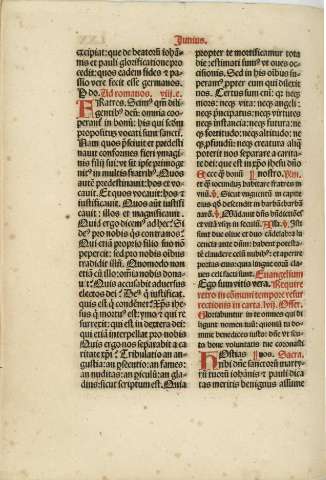 Junius.
excipiat: que de beatorũ iohã-
nis et pauli glorificatione pro
cedit: quos eadem fides et pa-
ssio vere fecit esse germanos.
P do. Ad romanos. viij. c.
FRatres. Scimꝰ qm̃ dili-
gentibus deũ: omnia coo-
perant̃ in bonũ: his qui scđm
propositũ vocati sunt sancti.
Nam quos p̃sciuit et predesti-
nauit conformes fieri ymagi-
nis filij sui: vt sit ipse primoge-
nitꝰ in multis fratribꝰ. Quos
autẽ predestinauit: hos et vo-
cauit. Et quos vocauit: hos et
iustificauit. Quos aũt iustifi-
cauit: illos et magnificauit.
Quid ergo dicemꝰ ad hec: Si
deꝰ pro nobis: quis cõtra nos?
Qui etiã proprio filio suo nõ
pepercit: sed pro nobis oĩbus
tradidit illũ. Quomodo non
etiã cũ illo: oĩa nobis dona-
uit? Quis accusabit aduersus
electos dei? Deꝰ q̃ iustificat.
quis est q̃ condẽnet? Xp̃s ihe-
sus q̃ mortuꝰ est: ymo et qui re
surrexit: qui est in dextera dei:
qui etiã interpellat pro nobis
Quis ergo nos separabit a ca
ritate xp̃i? Tribulatio an an-
gustia: an p̃secutio: an fames:
an nuditas: an piculũ: an gla
dius: sicut scriptum est. Quia
propter te mortificamur tota
die: estimati sumꝰ vt oues oc-
cisionis. Sed in his oĩbus su-
peramꝰ: ppter eum qui dilexit
nos. Certus sum eni: q̃ neq̃
mors: neq̃ vita: neq̃ angeli:
neq̃ p̃ncipatus: neq̃ virtutes
neq̃ instantia: neq̃ futura: ne
q̃ fortitudo: neq̃ altitudo: ne
q̃ p̃fundũ: neq̃ creatura alia
poterit nos separare a carita-
te dei: que est in xp̃o ihesu dño
Ecce q̃ bonũ nostro.
et q̃ iocundũ: habitare fratres in
vnũ. Sicut vnguentũ in capi-
te: qđ descendit in barbã: barbã
aarõ. Mãdauit dñs bñdictionẽ
et vitã vsq̃ in seculũ. Alla. Isti
sunt due oliue et duo cãdelabra lu
centia ante dñm: habent potesta-
tẽ claudere celũ nubibꝰ: et aperire
portas eius: quia lingue eorũ cla-
ues celi facti sunt. Euangelium
Ego sum vitis vera. Require
retro in cõmuni tempore resur
rectionis in carta. Offer.
Gloriabuntur in te omnes qui di
ligunt nomen tuũ: quoniã tu do-
mine benedices iusto: dñe vt scu-
to bone voluntatis tue coronasti
nos. Sacra.
HOstias
tibi dñe sanctorũ mar-
tyrũ tuorũ iohãnis et pauli dica
tas meritis benignus assume